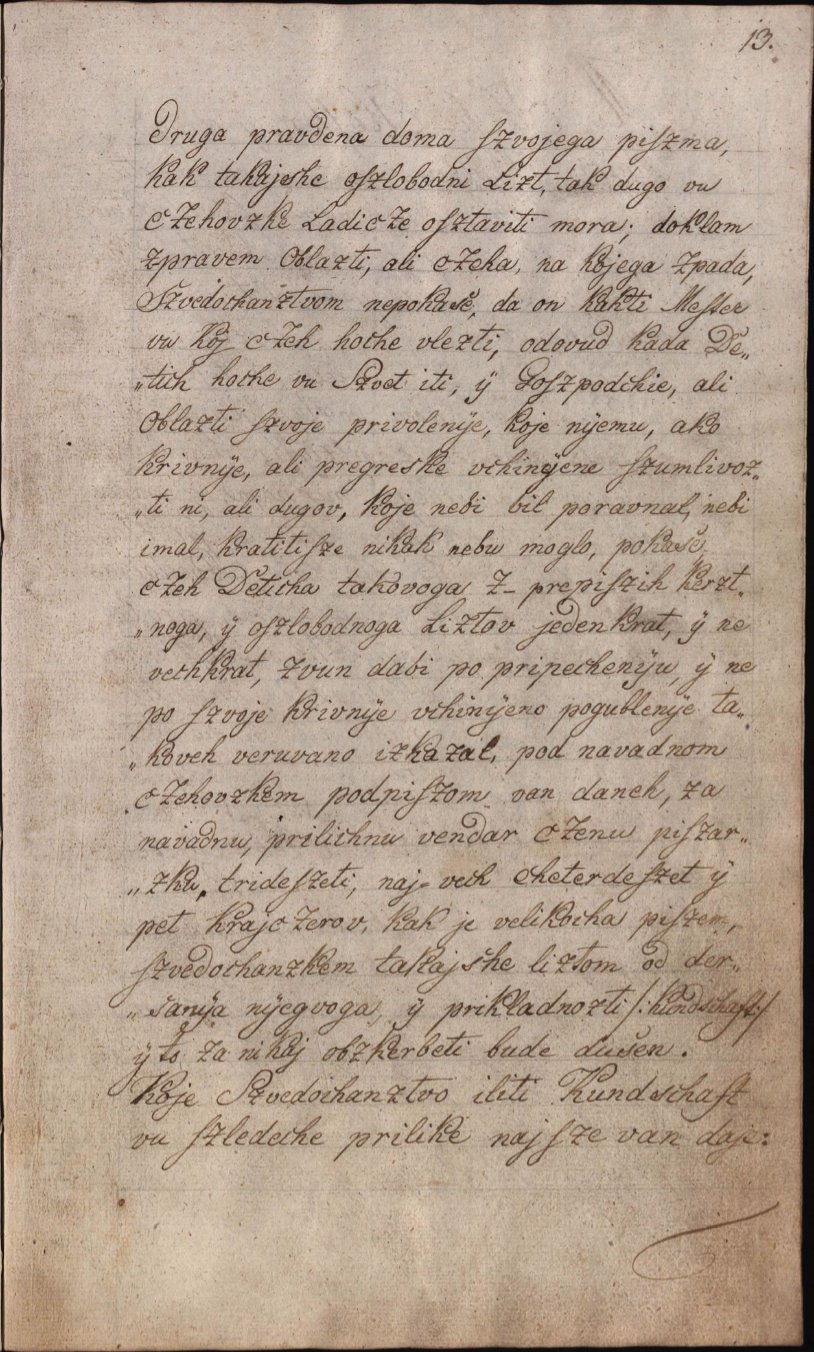 13.
Druga pravdena doma szvojega piszma,
kak takajshe oszlobodni Lizt, tak dugo vu
cZehovzke Ladicze osztaviti mora; doklam
zpravem Oblazti, ali cZeha, na kojega zpada,
Szvedochanztvom nepokaše, da on kakti Mester
vu koj cZeh hoche vlezti, odovud kada De„
„tich hoche vu Szvet iti, ÿ Goszpodchie, ali
Oblazti szvoje privolenÿe, koje nÿemu, ako
krivnÿe, ali pregreske vchinÿene szumlivoz„
„ti ni, ali dugov, koje nebi bil poravnal, nebi
imal, kratitisze nikak nebu moglo, pokaše,
cZeh Deticha takovoga z- prepiszih kerzt„
„noga, ÿ oszlobodnoga Liztov jedenkrat, ÿ ne
vechkrat, zvun dabi po pripechenÿu, ÿ ne
po szvoje krivnÿe vchinÿeno pogublenÿe ta„
„koveh veruvano izkazal, pod navadnom
cZehovzkem podpiszom van daneh, za
navadnu, prilichnu vendar cZenu piszar„
„zku, trideszeti, naj-vech cheterdeszet ÿ
pet krajcZerov, kak je velikocha piszem,
szvedochanzkem takajshe liztom od der„
„sanÿa nÿegvoga, ÿ prikladnozti /:Kundschaft:/
ÿ to za nikaj obzkerbeti bude dušen.
Koje Szvedochanztvo iliti Kundschaft
vu szledeche prilike najsze van daje: